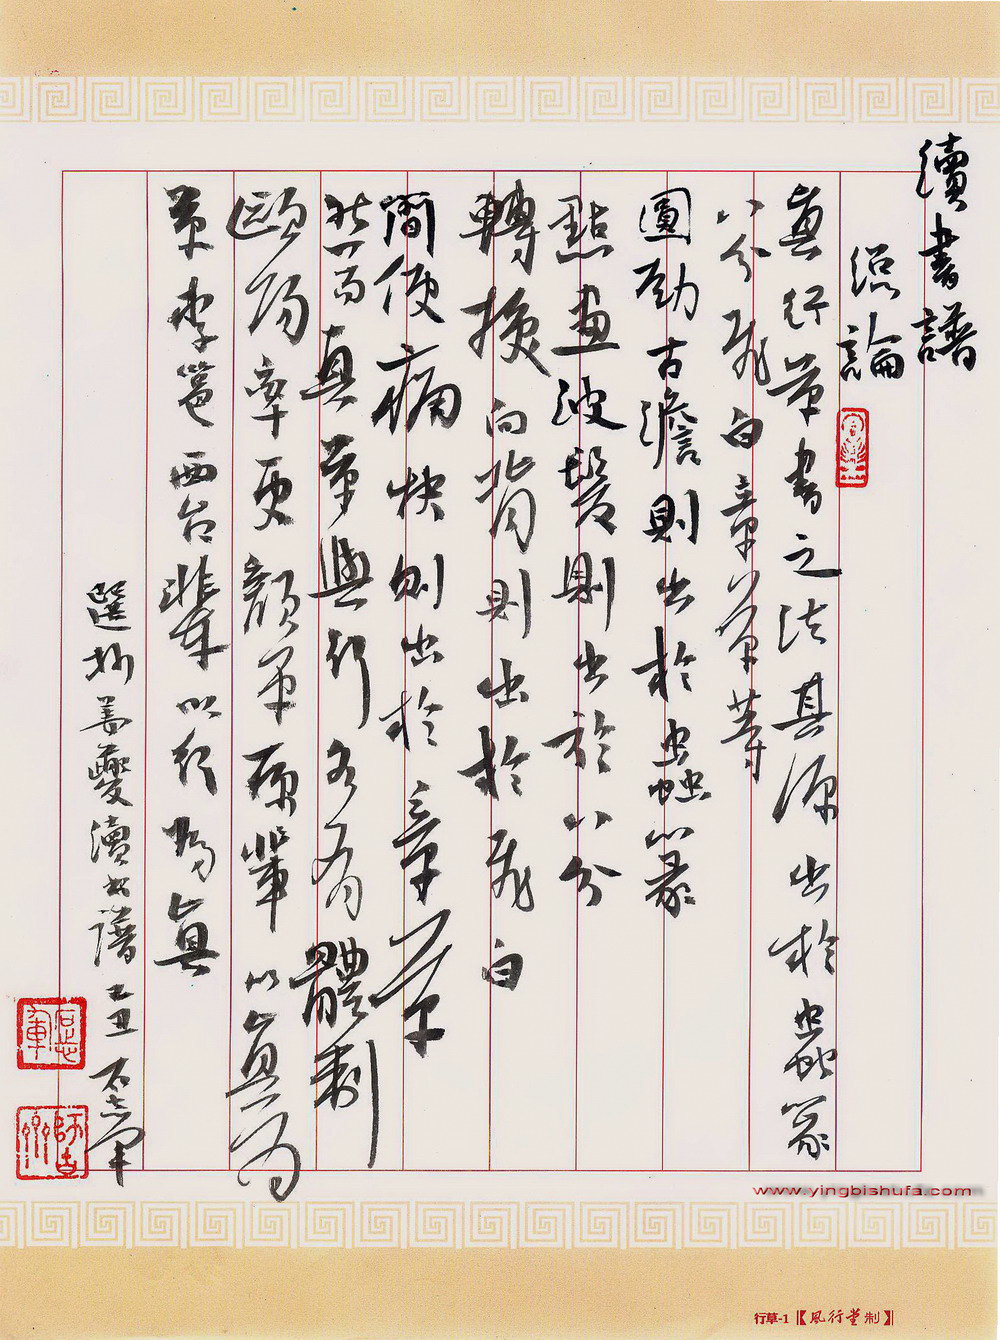 續書譜
總論
真行草書之法其源出於蟲篆
八分飛白章草等
圓勁古澹則出於蟲篆
點畫波髮則出於八分
轉換向背則出於飛白
簡便痛快則出於章草
然而真草與行各有體制
歐陽率更顏平原輩以真為
草李邕西台輩以行為真
選抄姜夔續書譜 己丑 志軍
www.yingbishufa.com
行草-1【風行堂制】